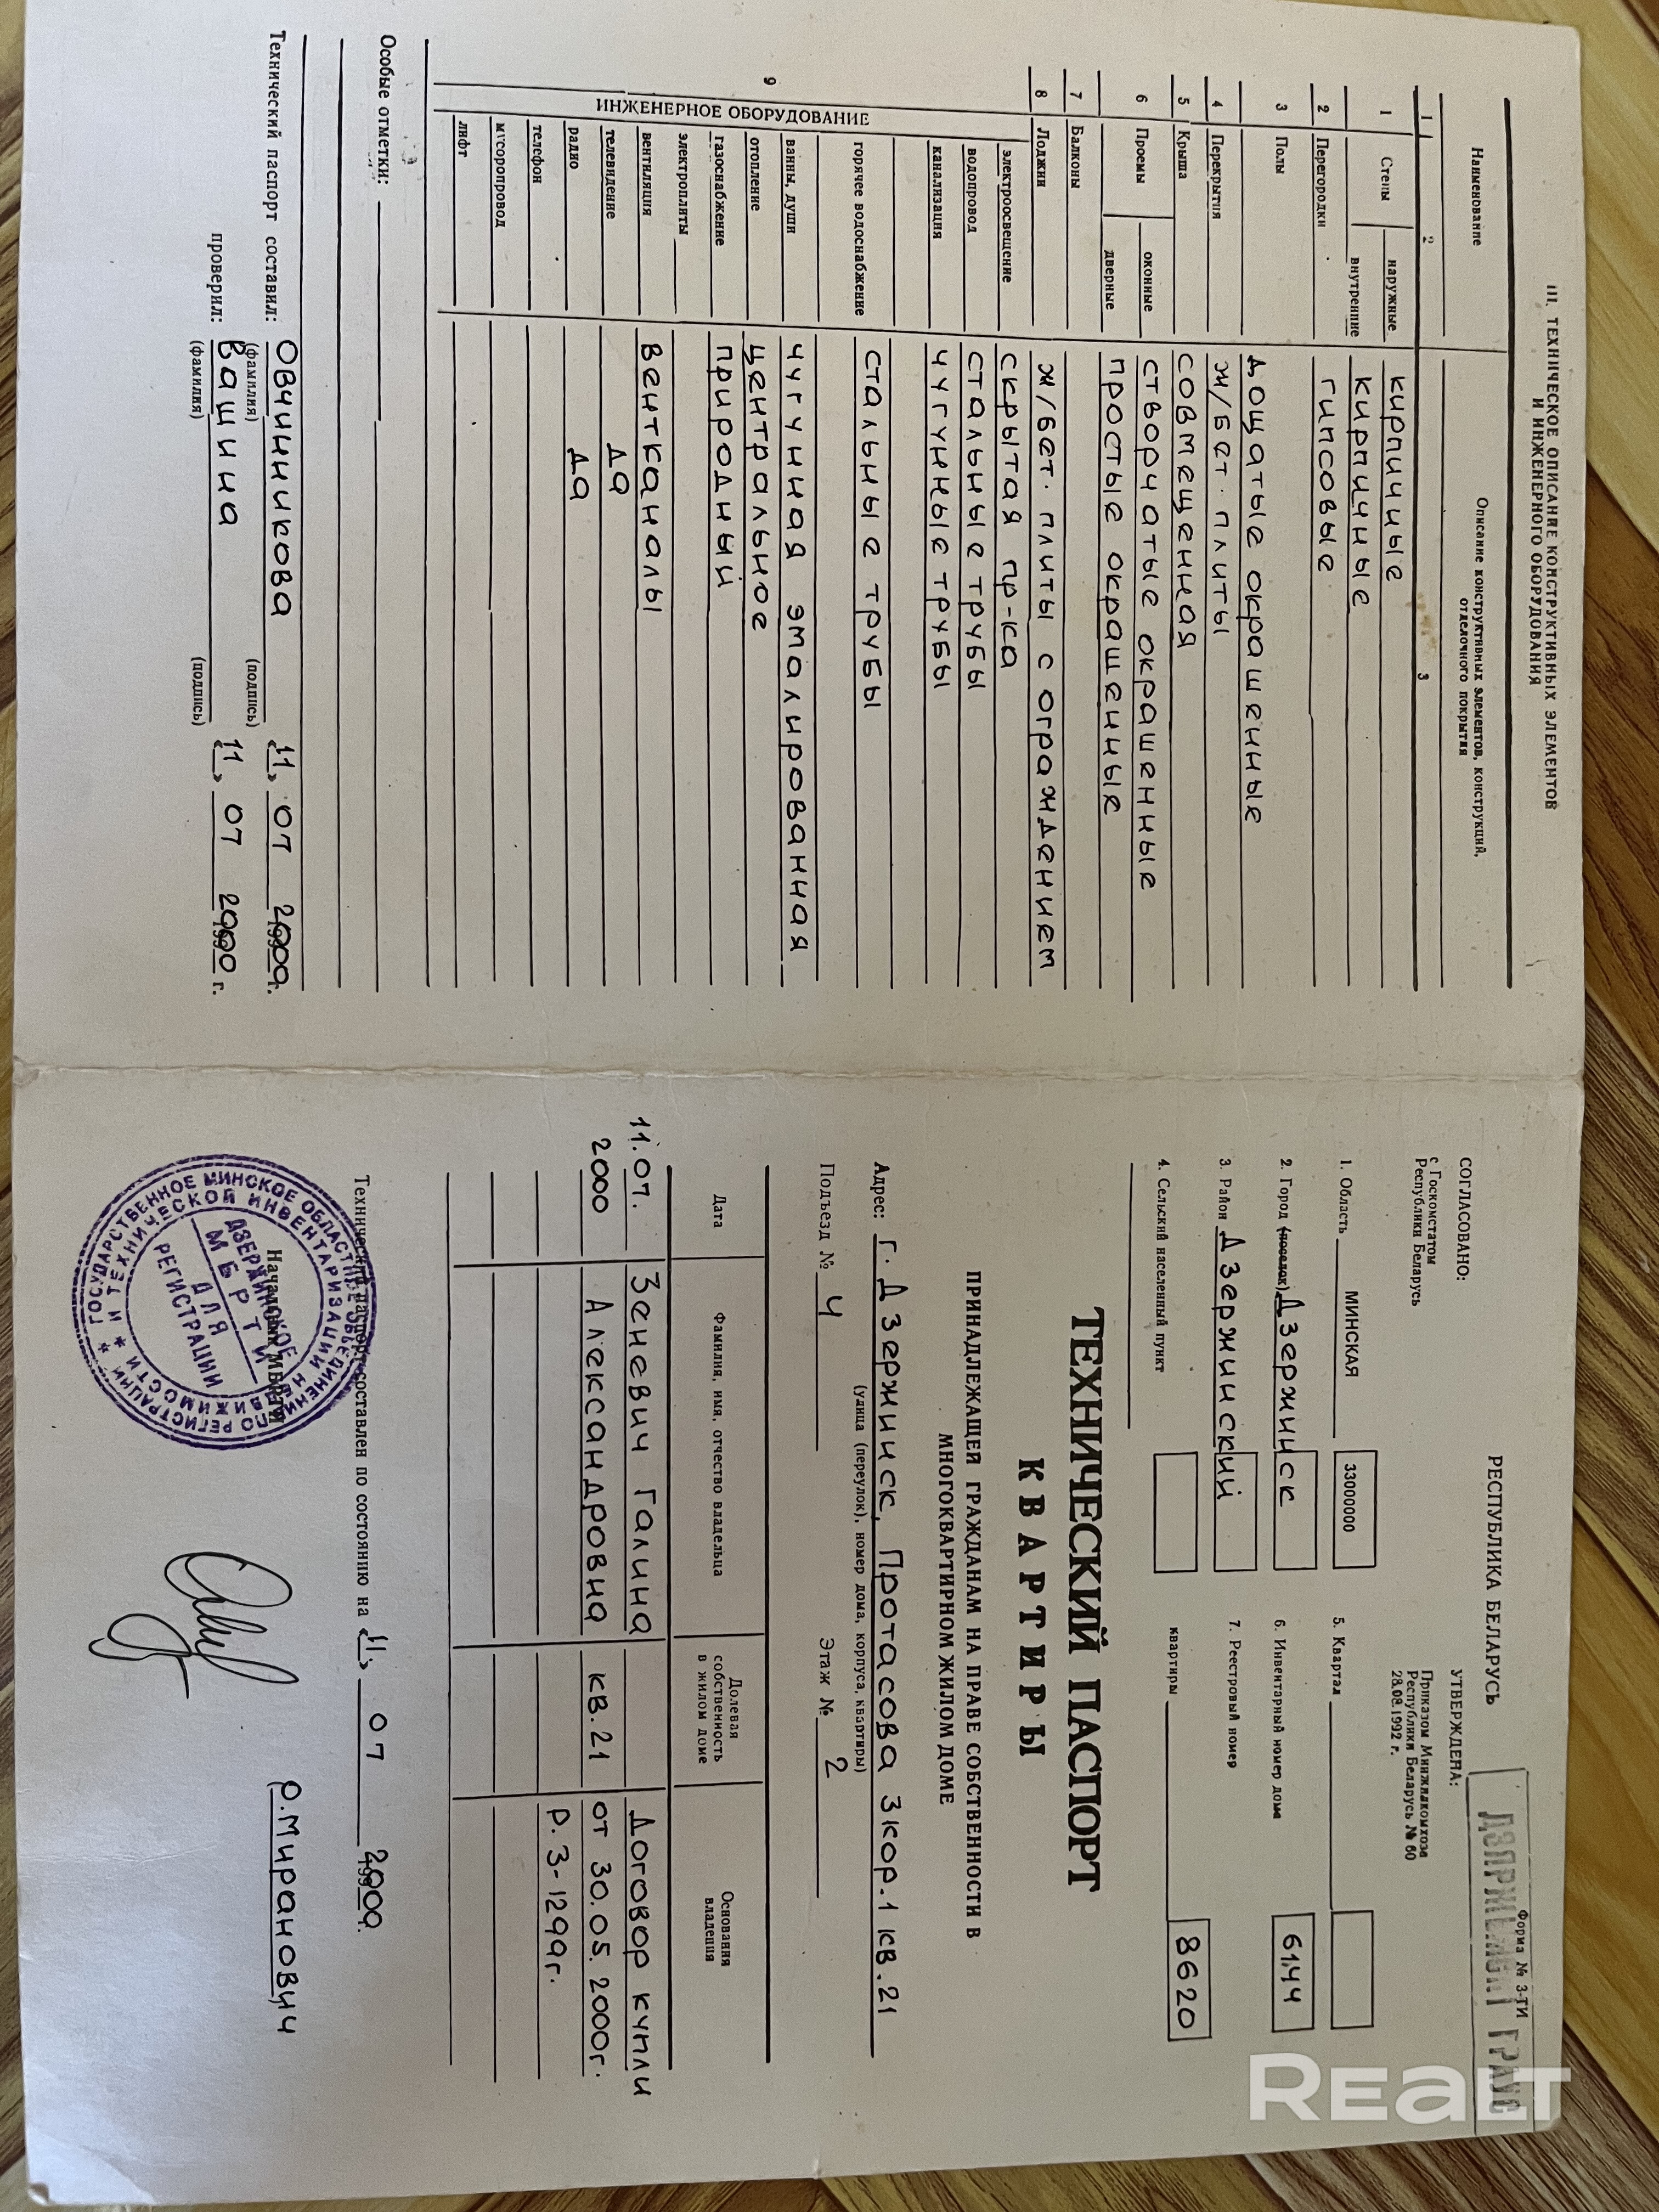 III. ТЕХНИЧЕСКОЕ ОПИСАНИЕ КОНСТРУКТИВНЫХ ЭЛЕМЕНТОВ
И ИНЖЕНЕРНОГО ОБОРУДОВАНИЯ
Наименование Описание конструктивных элементов, конструкций,
отделочного покрытия
1 2 3
1 Стены наружные кирпичные
внутренние кирпичные
2 Перегородки гипсовые
3 Полы дощатые окрашенные
4 Перекрытия ж/бет. плиты
5 Крыша совмещенная
6 Проемы оконные створчатые окрашенные
дверные простые окрашенные
7 Балконы
8 Лоджии ж/бет. плиты с ограждением
9 ИНЖЕНЕРНОЕ ОБОРУДОВАНИЕ
электроосвещение скрытая пр-ка
водопровод стальные трубы
канализация чугунные трубы
горячее водоснабжение стальные трубы
ванны, души чугунная эмалированная
отопление центральное
газоснабжение природный
электроплиты
вентиляция вентканалы
телевидение да
радио да
телефон
мусоропровод
лифт
Особые отметки:
Технический паспорт составил: Овчинникова 11, 07 2000г.
(фамилия) (подпись)
проверил: Вашина 11, 07 2000 г.
(фамилия) (подпись)
Форма № 3-ТИ
РЕСПУБЛИКА БЕЛАРУСЬ
СОГЛАСОВАНО:
с Госкомстатом
Республики Беларусь
УТВЕРЖДЕНА:
Приказом Минжилкомхоза
Республики Беларусь № 60
28.08.1992 г.
1. Область МИНСКАЯ 33000000
2. Город (поселок) Дзержинск
3. Район Дзержинский
4. Сельский населенный пункт
5. Квартал
6. Инвентарный номер дома 6144
7. Реестровый номер
квартиры 8620
ТЕХНИЧЕСКИЙ ПАСПОРТ
КВАРТИРЫ
ПРИНАДЛЕЖАЩЕЙ ГРАЖДАНАМ НА ПРАВЕ СОБСТВЕННОСТИ В
МНОГОКВАРТИРНОМ ЖИЛОМ ДОМЕ
Адрес: г. Дзержинск, Протасова 3 кор.1 кв.21
(улица (переулок), номер дома, корпуса, квартиры)
Подъезд № 4 Этаж № 2
Дата Фамилия, имя, отчество владельца Долевая собственность в жилом доме Основания владения
11.07. Зеневич Галина Договор купли
2000 Александровна кв.21 от 30.05.2000г.
Р. 3-1299г.
Технический паспорт составлен по состоянию на 11, 07 2000г.
Начальник МБРТИ Р.Миранович
ГОСУДАРСТВЕННОЕ МИНСКОЕ ОБЛАСТНОЕ ОБЪЕДИНЕНИЕ ПО РЕГИСТРАЦИИ
И ТЕХНИЧЕСКОЙ ИНВЕНТАРИЗАЦИИ НЕДВИЖИМОСТИ
ДЗЕРЖИНСКОЕ
МБРТИ
ДЛЯ
РЕГИСТРАЦИИ
REALT